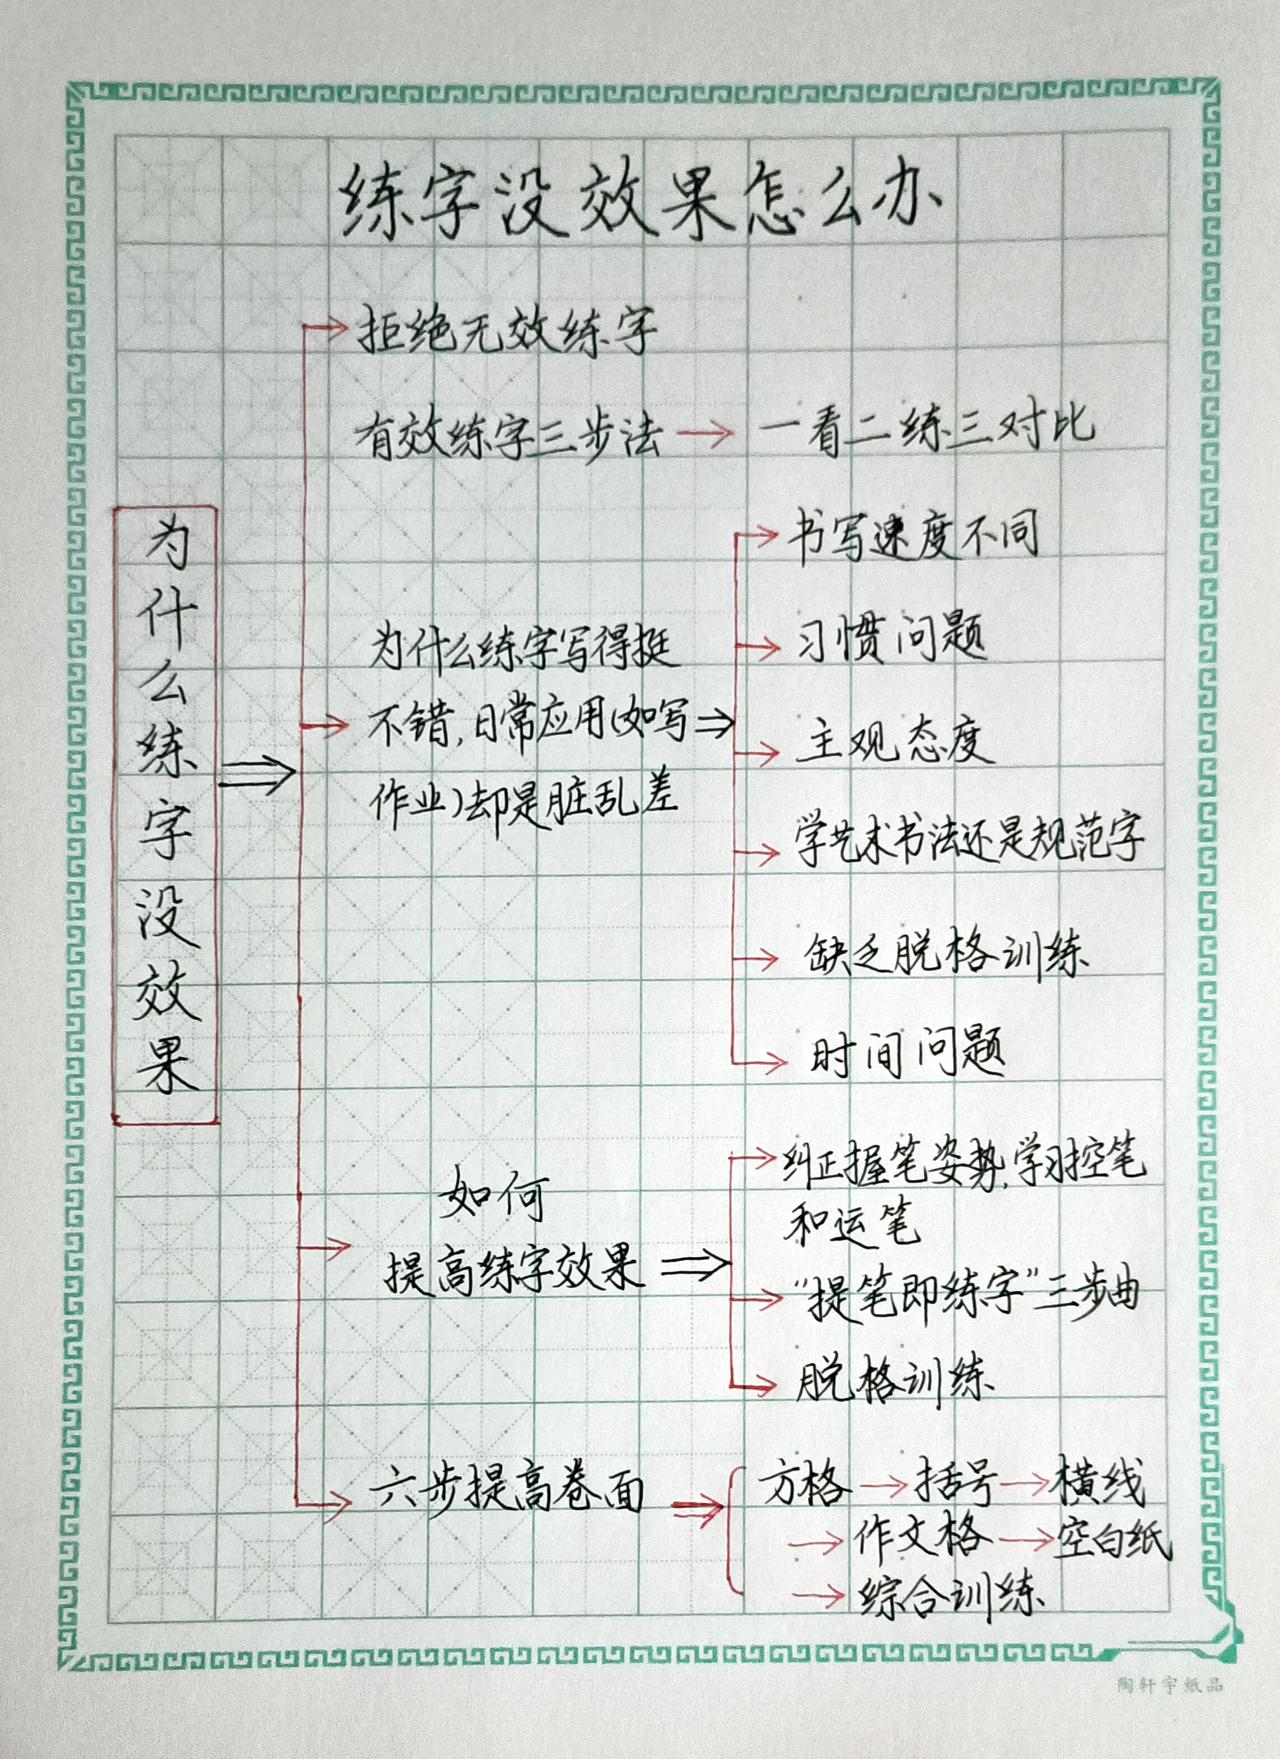 练字没效果怎么办
为什么练字没效果
拒绝无效练字
有效练字三步法
一看二练三对比
为什么练字写得挺
不错,日常应用(如写
作业)却是脏乱差
书写速度不同
习惯问题
主观态度
学艺术书法还是规范字
缺乏脱格训练
时间问题
如何
提高练字效果
纠正握笔姿势,学习控笔
和运笔
“提笔即练字”三步曲
脱格训练
六步提高卷面
方格→括号→横线
→作文格→空白纸
→综合训练
陶轩字纸品